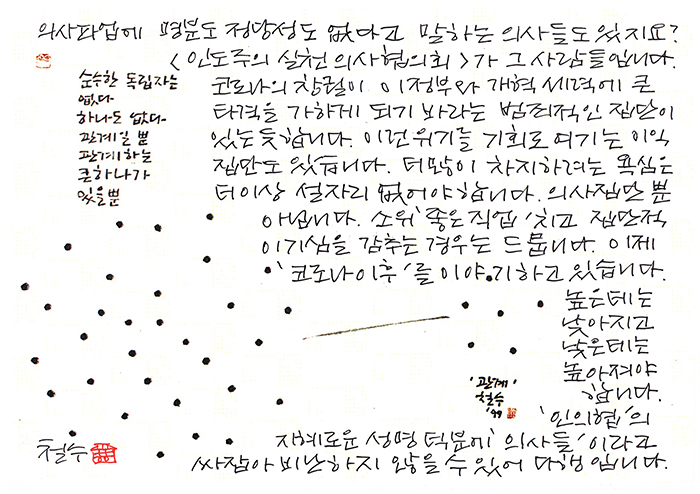 의사파업에 명분도 정당성도 없다고 말하는 의사들도 있지요?
<인도주의 실천 의사협의회>가 그 사람들입니다.
코로나의 창궐이 이정부와 개혁 세력에 큰
타격을 가하게 되기 바라는 범죄적인 집단이
있는듯합니다. 이런 위기를 기회로 여기는 이익
집단도 있습니다. 더많이 차지하려는 욕심은
더이상 설자리 없어야합니다. 의사집단 뿐
아닙니다. 소위 '좋은 직업' 치고 집단적
이기심을 감추는 경우는 드뭅니다. 이제
'코로나 이후'를 이야기하고 있습니다.
높은데는
낮아지고
낮은데는
높아져야
합니다.
'인의협'의
지혜로운 성명 덕분에 '의사들'이라고
싸잡아 비난하지 않을 수 있어 다행입니다.
순수한 독립자는
없다
하나도 없다
관계일 뿐
관계하는
큰하나가
있을뿐
'관계'
철수
'99
철수